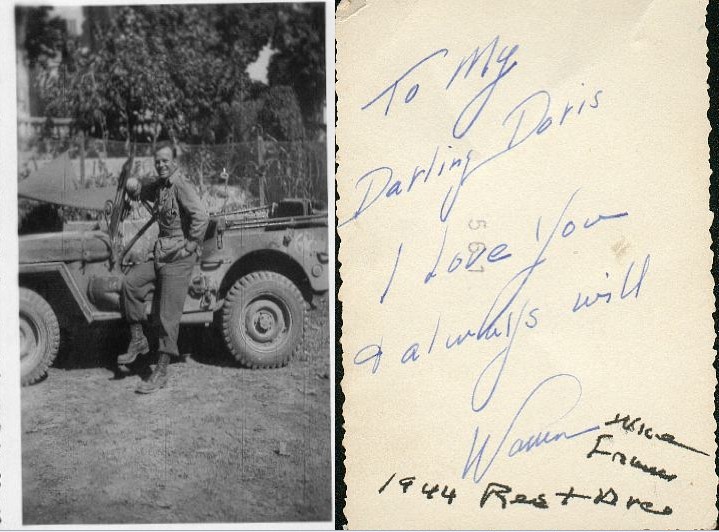 To My
Darling Doris
I Love You
& always will
Warren Nice
France
1944 Rest Area